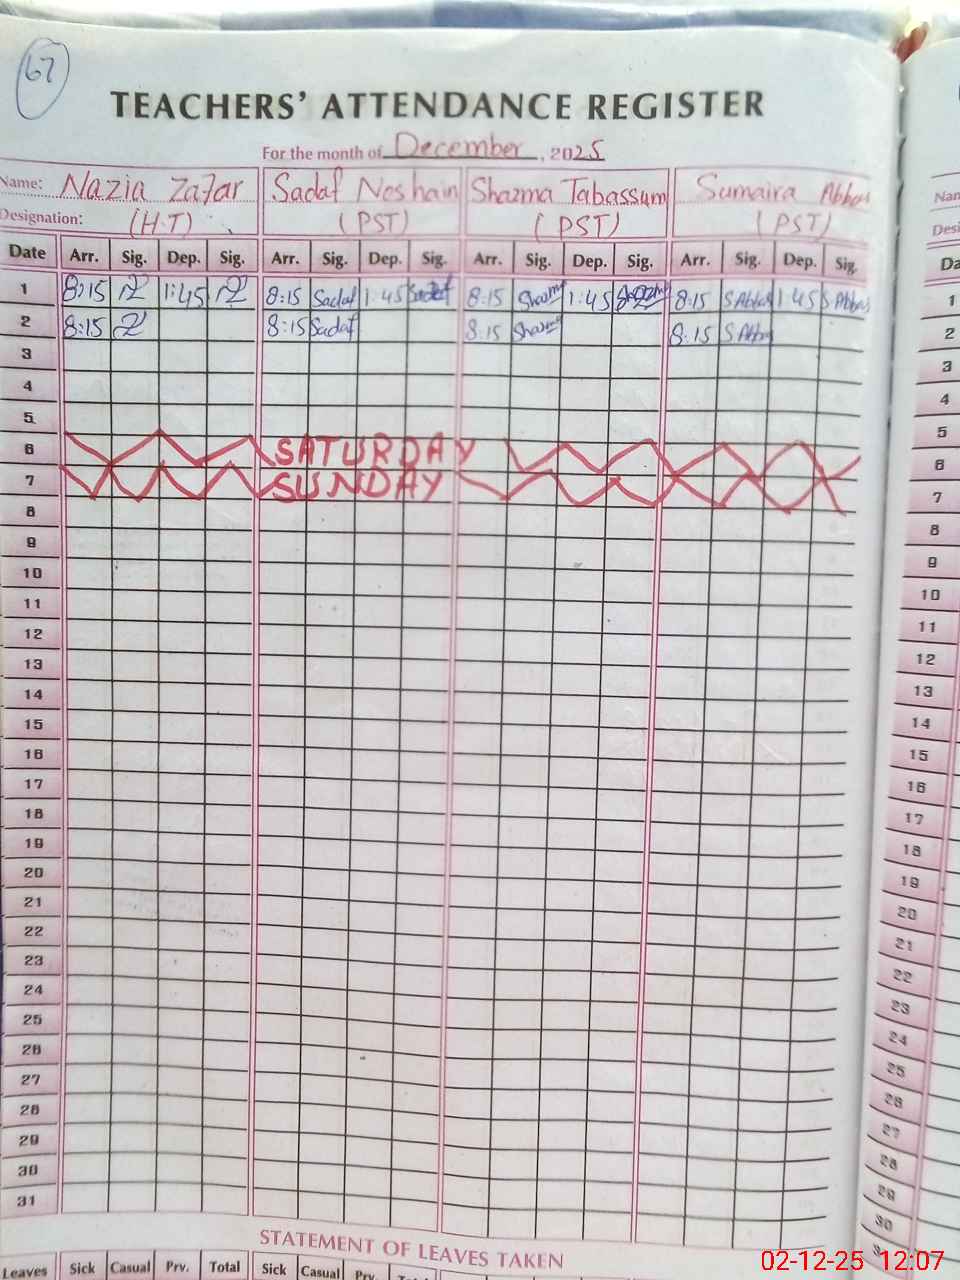 67
TEACHERS' ATTENDANCE REGISTER
For the month of December, 2025
Name: Nazia Zafar Sadaf Noshain Shazma Tabassum Sumaira Abbas
Designation: (H.T) (PST) (PST) (PST)
Date Arr. Sig. Dep. Sig. Arr. Sig. Dep. Sig. Arr. Sig. Dep. Sig. Arr. Sig. Dep. Sig.
1 8:15 1:45 8:15 Sadaf 1:45 Sadaf 8:15 Shazma 1:45 Shazma 8:15 SAbbas 1:45 SAbbas 1
2 8:15 8:15 Sadaf 8:15 Shazma 8:15 SAbbas 2
3 3
4 4
5 5
6 SATURDAY 6
7 SUNDAY 7
8 8
9 9
10 10
11 11
12 12
13 13
14 14
15 15
16 16
17 17
18 18
19 19
20 20
21 21
22 22
23 23
24 24
25 25
26 26
27 27
28 28
29 29
30 30
31
STATEMENT OF LEAVES TAKEN
Leaves Sick Casual Prv. Total Sick Casual Prv.
02-12-25 12:07